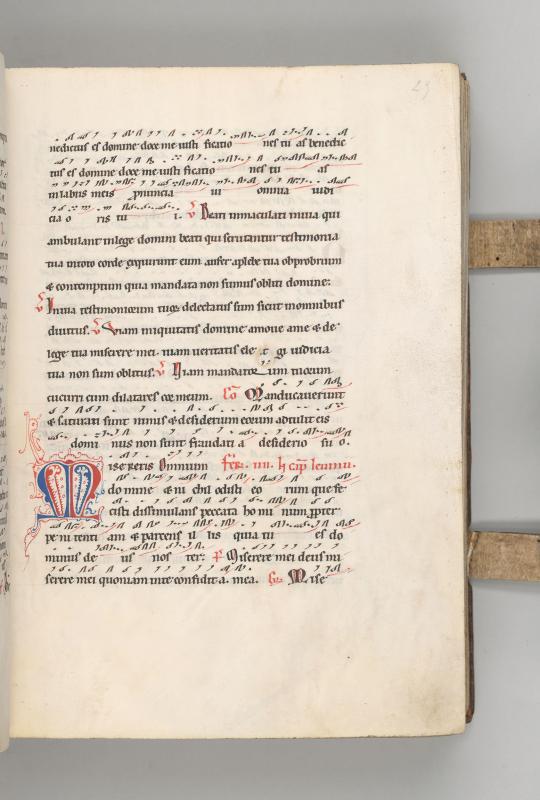 23
nedictus es domine doce me iusti ficatio nes tu as benedic
tus es domine doce me iusti ficatio nes tu as
in labiis meis pronuncia ui omnia iudi
cia o ris tu i. v Beati inmaculati in uia qui
ambulant in lege domini beati qui scrutantur testimonia
tua in toto corde exquirunt eum aufer a plebe tua obprobrium
& contemptum quia mandata non sumus obliti domine:
v In uia testimoniorum tuorum delectatus sum sicut in omnibus
diuitiis. v Viam iniquitatis domine amoue a me & de
lege tua miserere mei. uiam ueritatis ele gi iudicia
tua non sum oblitus. v Viam mandatorum tuorum
cucurri cum dilatares cor meum. Co Manducauerunt
& saturati sunt nimis & desiderium eorum adtulit eis
domi nus non sunt fraudati a desiderio su o.
Misereris omnium fer. iiii. in cap ieiunii.
domine & ni chil odisti eo rum que fe
cisti dissimulans peccata ho mi num propter
peni tenti am & parcens il lis quia tu es do
minus de us nos ter: p Miserere mei deus mi
serere mei quoniam in te confidit a. mea. Gr. Mise